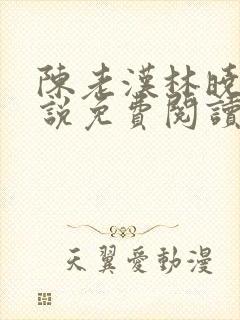 陳老漢林曉
說免費閱讀
天翼愛動漫